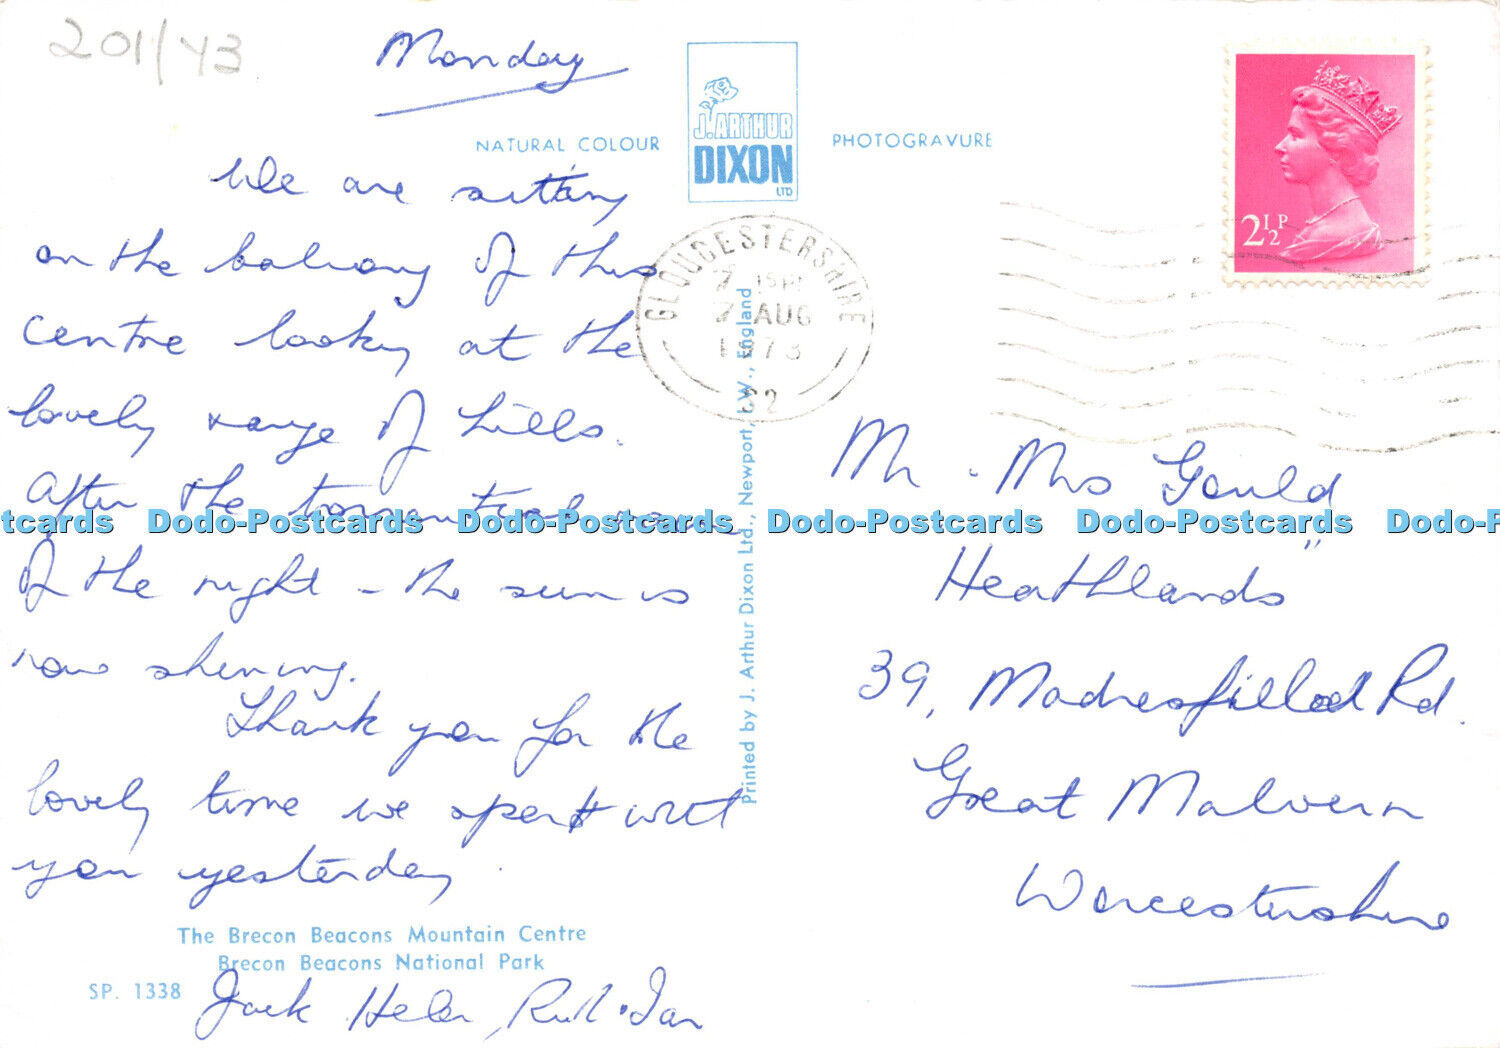 201/43
Monday
NATURAL COLOUR
J. ARTHUR
DIXON
LTD
PHOTOGRAVURE
2½P
GLOUCESTERSHIRE
7 AUG
1973
We are sitting
on the balcony of this
centre looking at the
lovely range of hills.
After the torrential rain
of the night - the sun is
now shining.
Thank you for the
lovely time we spent with
you yesterday.
The Brecon Beacons Mountain Centre
Brecon Beacons National Park
SP. 1338
Jack Helen, Ruth & Ian
Printed by J. Arthur Dixon Ltd., Newport, I.W., England
Mr & Mrs Gould
Heathlands"
39, Madresfield Rd.
Great Malvern
Worcestershire
Dodo-Postcards Dodo-Postcards Dodo-Postcards Dodo-Postcards